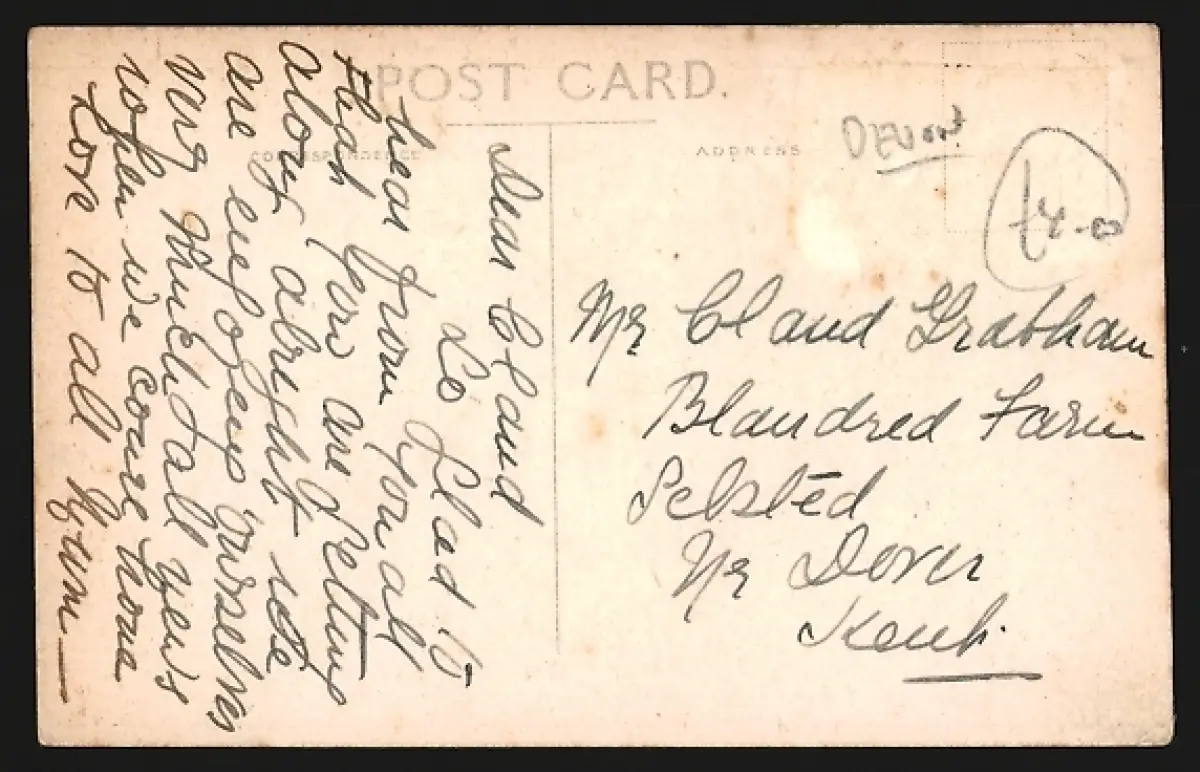 POST CARD.
CORRESPONDENCE
ADDRESS
DEVON
£4-00
Dear Claud
So Glad to
hear from you all
& that you are Getting
along alright we
are enjoying ourselves
very Much all news
when we come home
Love to all Mum
Mr Claud Grabham
Blandred Farm
Selsted
Nr Dover
Kent.